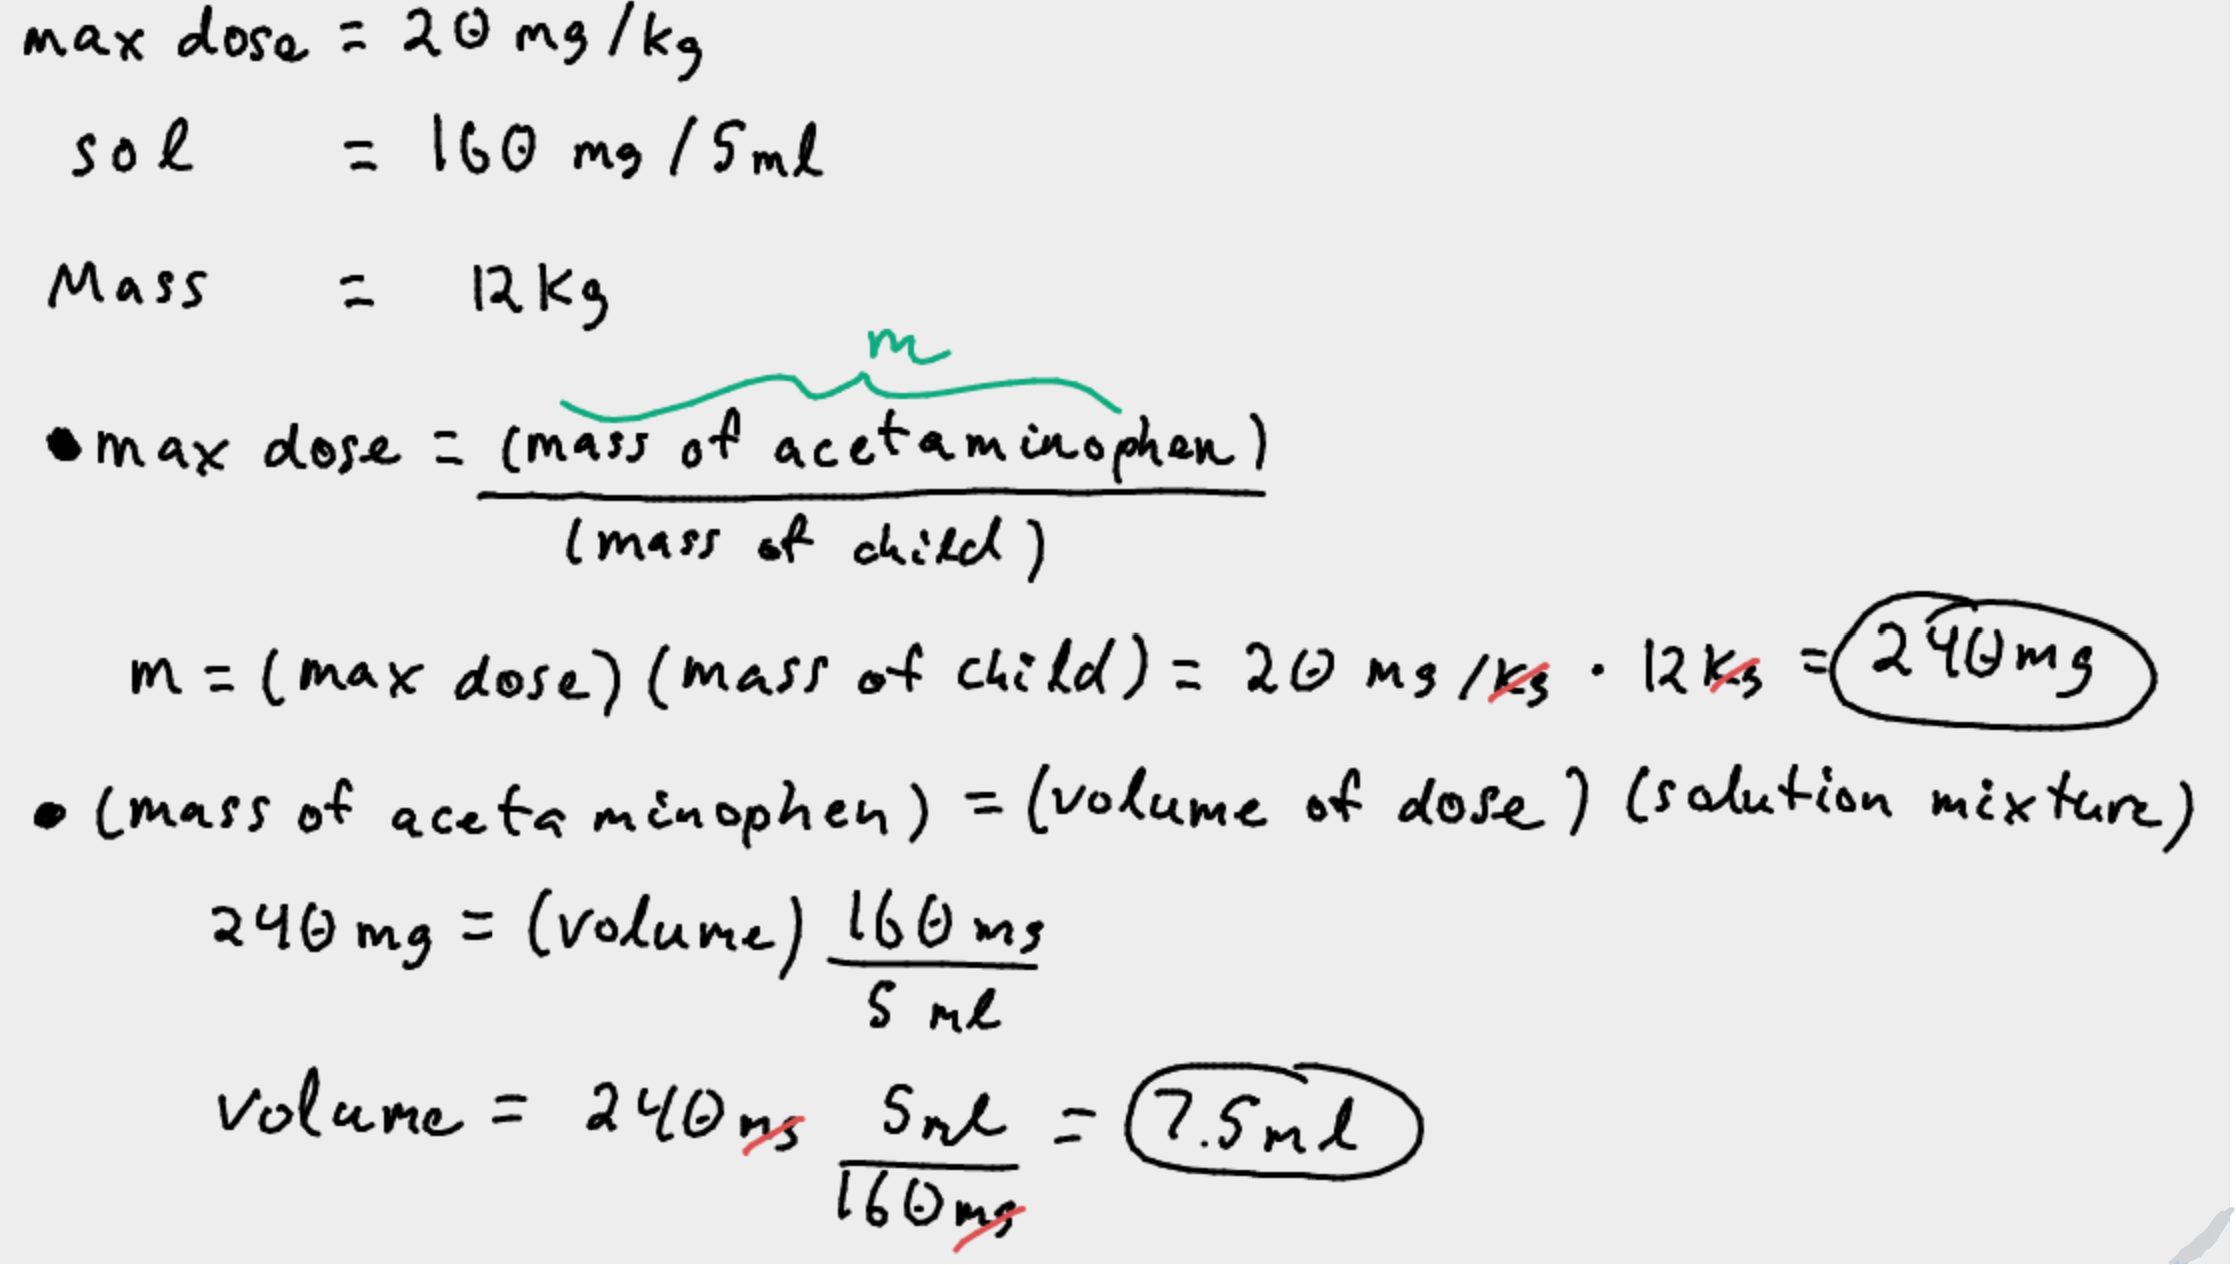 max dose = 20 mg/kg
sol = 160 mg/5ml
Mass = 12kg
m
• max dose = (mass of acetaminophen)
(mass of child)
m = (max dose)(mass of child) = 20 mg/kg · 12kg = 240mg
• (mass of acetaminophen) = (volume of dose)(solution mixture)
240mg = (volume) 160 mg
5 ml
volume = 240mg 5ml = 7.5ml
160mg